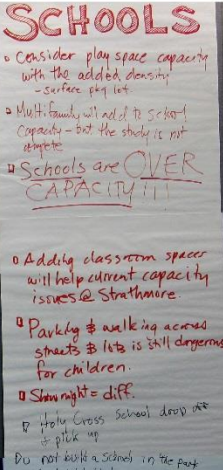 SCHOOLS
Consider play space capacity
with the added density
- surface pkg lot.
Multifamily will add to school
Capacity - but the study is not
complete
Schools are OVER
CAPACITY!!!
Adding classroom spaces
will help current capacity
issues @ Strathmore.
Parking & walking across
streets & lots is still dangerous
for children.
= diff.
Holy Cross School drop off
& pick up
Do not build a schools in the